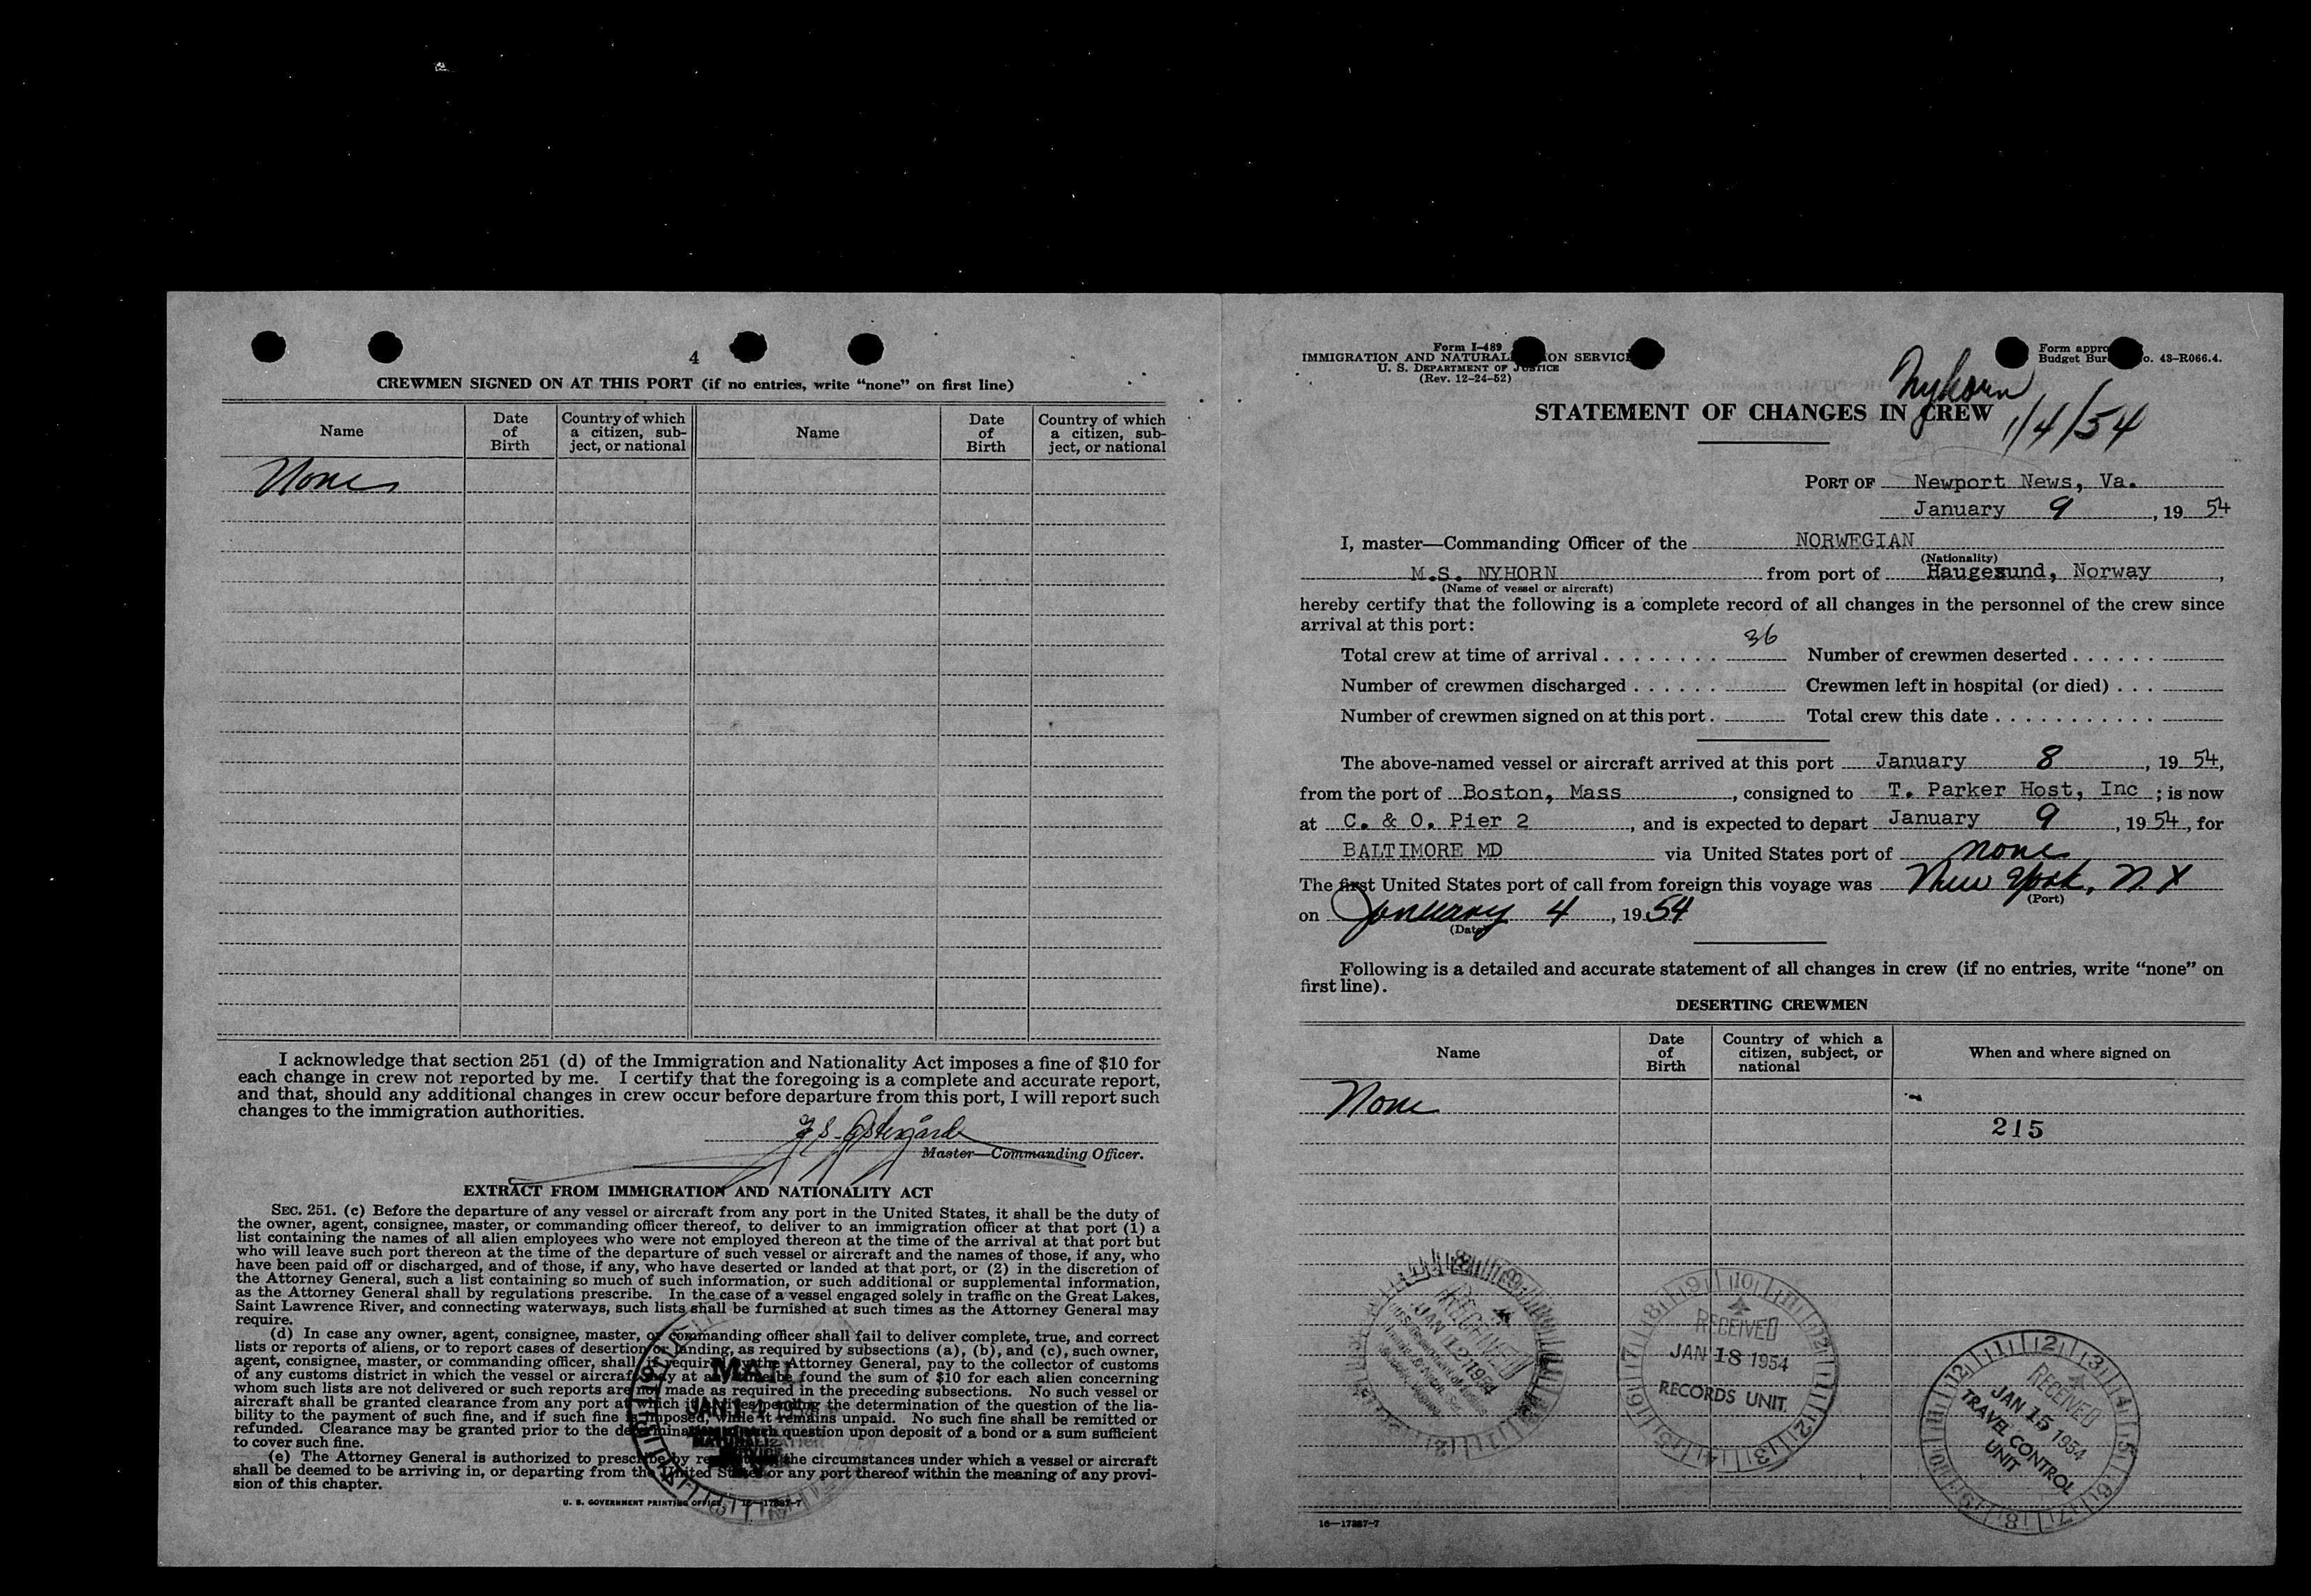 4
CREWMEN SIGNED ON AT THIS PORT (if no entries, write “none” on first line)
Name
Date of Birth
Country of which a citizen, subject, or national
Name
Date of Birth
Country of which a citizen, subject, or national
None
I acknowledge that section 251 (d) of the Immigration and Nationality Act imposes a fine of $10 for
each change in crew not reported by me. I certify that the foregoing is a complete and accurate report,
and that, should any additional changes in crew occur before departure from this port, I will report such
changes to the immigration authorities.
Master—Commanding Officer.
EXTRACT FROM IMMIGRATION AND NATIONALITY ACT
SEC. 251. (c) Before the departure of any vessel or aircraft from any port in the United States, it shall be the duty of
the owner, agent, consignee, master, or commanding officer thereof, to deliver to an immigration officer at that port (1) a
list containing the names of all alien employees who were not employed thereon at the time of the arrival at that port but
who will leave such port thereon at the time of the departure of such vessel or aircraft and the names of those, if any, who
have been paid off or discharged, and of those, if any, who have deserted or landed at that port, or (2) in the discretion of
the Attorney General, such a list containing so much of such information, or such additional or supplemental information,
as the Attorney General shall by regulations prescribe. In the case of a vessel engaged solely in traffic on the Great Lakes,
Saint Lawrence River, and connecting waterways, such lists shall be furnished at such times as the Attorney General may
require.
(d) In case any owner, agent, consignee, master, or commanding officer shall fail to deliver complete, true, and correct
lists or reports of aliens, or to report cases of desertion or landing, as required by subsections (a), (b), and (c), such owner,
agent, consignee, master, or commanding officer, shall, if required by the Attorney General, pay to the collector of customs
of any customs district in which the vessel or aircraft may at any time be found the sum of $10 for each alien concerning
whom such lists are not delivered or such reports are not made as required in the preceding subsections. No such vessel or
aircraft shall be granted clearance from any port at which it arrives pending the determination of the question of the lia-
bility to the payment of such fine, and if such fine is imposed, while it remains unpaid. No such fine shall be remitted or
refunded. Clearance may be granted prior to the determination of such question upon deposit of a bond or a sum sufficient
to cover such fine.
(e) The Attorney General is authorized to prescribe by regulations the circumstances under which a vessel or aircraft
shall be deemed to be arriving in, or departing from the United States or any port thereof within the meaning of any provi-
sion of this chapter.
U. S. GOVERNMENT PRINTING OFFICE 16—17337-7
MAIL
JAN 14
Form I-489
IMMIGRATION AND NATURALIZATION SERVICE
U. S. DEPARTMENT OF JUSTICE
(Rev. 12-24-52)
Form appro
Budget Bur o. 43-R066.4.
Nyhorn
1/4/54
STATEMENT OF CHANGES IN CREW
PORT OF Newport News, Va.
January 9, 1954
I, master—Commanding Officer of the NORWEGIAN
(Nationality)
M.S. NYHORN from port of Haugesund, Norway,
(Name of vessel or aircraft)
hereby certify that the following is a complete record of all changes in the personnel of the crew since
arrival at this port:
Total crew at time of arrival 36 Number of crewmen deserted
Number of crewmen discharged Crewmen left in hospital (or died)
Number of crewmen signed on at this port Total crew this date
The above-named vessel or aircraft arrived at this port January 8, 1954,
from the port of Boston, Mass, consigned to T. Parker Host, Inc; is now
at C. & O. Pier 2, and is expected to depart January 9, 1954, for
BALTIMORE MD via United States port of none
The first United States port of call from foreign this voyage was New York, NY
(Port)
on January 4, 1954
(Date)
Following is a detailed and accurate statement of all changes in crew (if no entries, write “none” on
first line).
DESERTING CREWMEN
Name
Date of Birth
Country of which a citizen, subject, or national
When and where signed on
None
215
RECEIVED
JAN 12 1954
RECEIVED
JAN 18 1954
RECORDS UNIT.
RECEIVED
JAN 15 1954
TRAVEL CONTROL
UNIT
16—17337-7